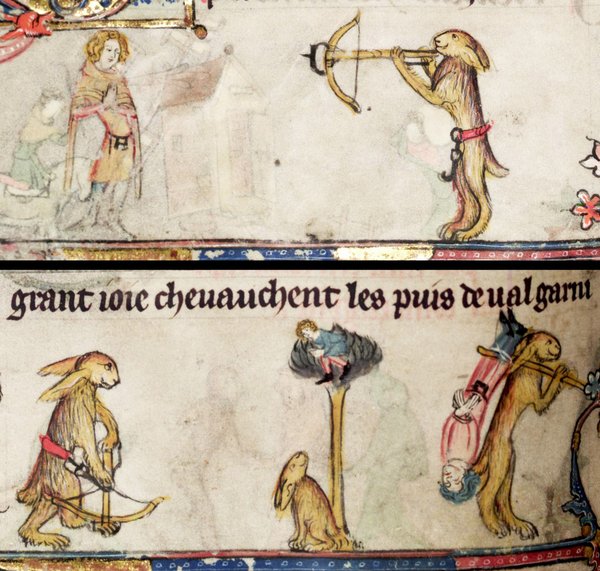 grant ioie cheuauchent les puis de ual garni